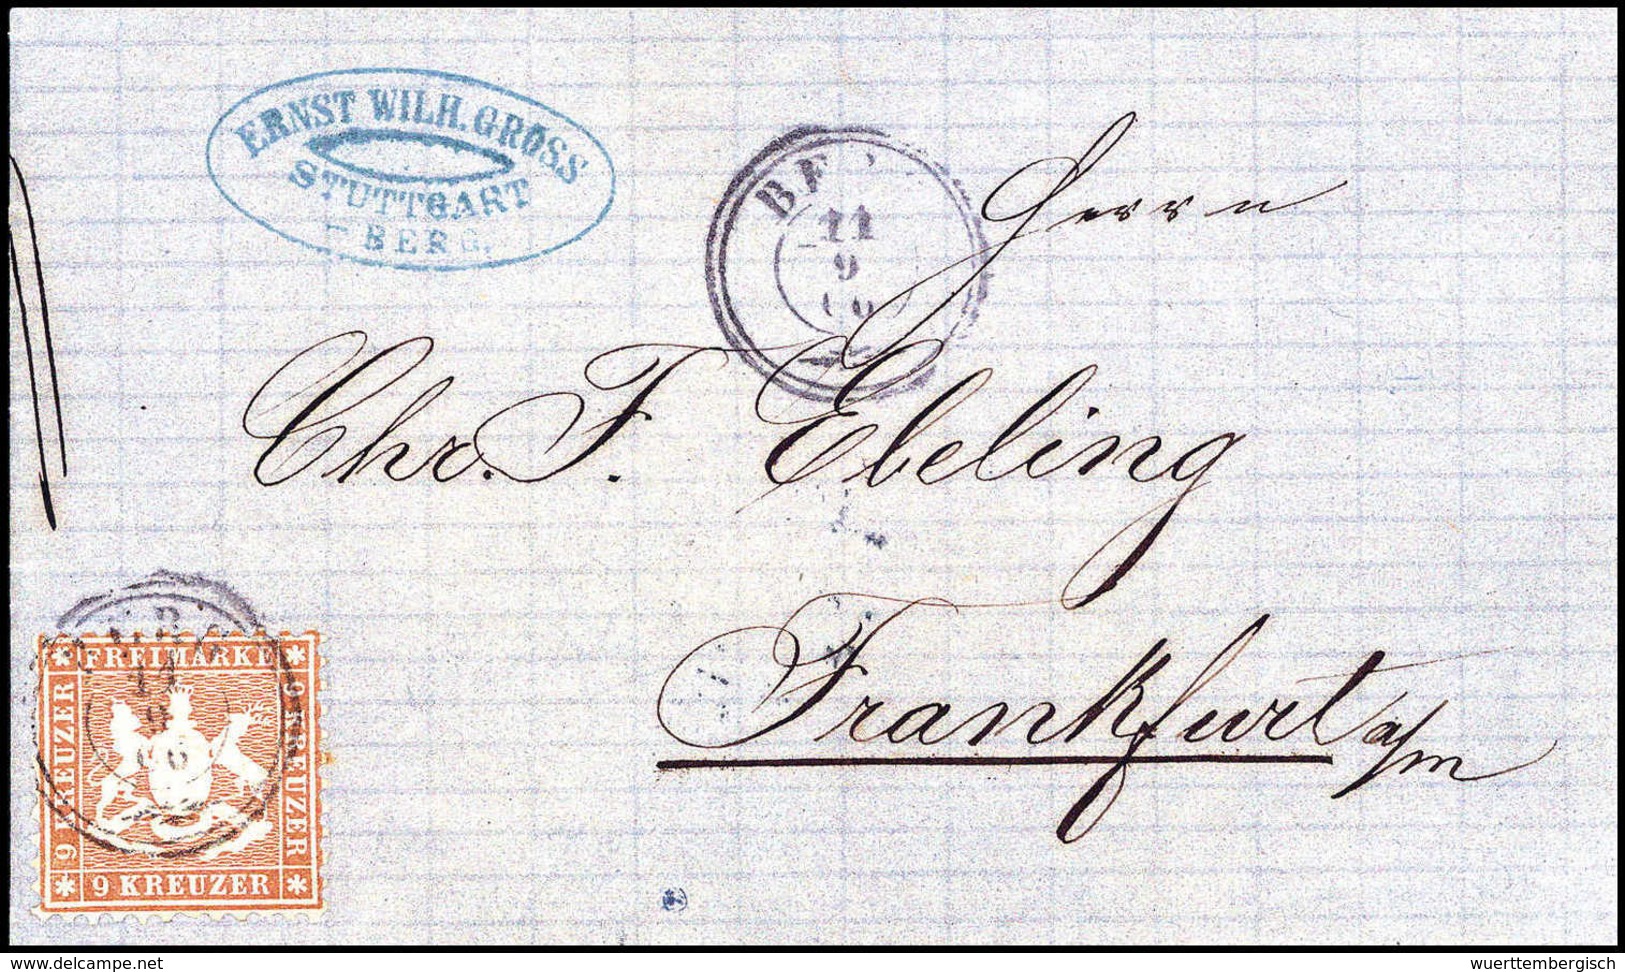 ERNST WILH. GROSS
STUTTGART
- BERG.
11
9
Herrn
Chr. F. Ebeling
Frankfurt a/m
BERG
11
9
66
FREIMARKE
9 KREUZER
9 KREUZER
9 KREUZER
www.delcampe.net
wuerttembergisch